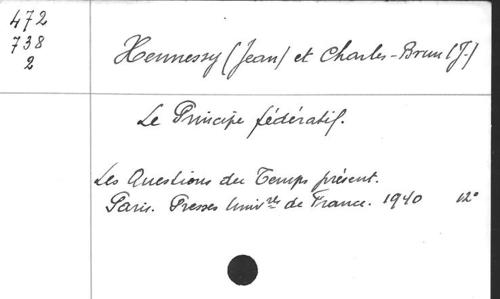 472
738
2
Hennessy (Jean) et Charles-Brun (J.)
Le Principe fédératif.
Les Questions du Temps présent.
Paris. Presses Univres de France. 1940 12°